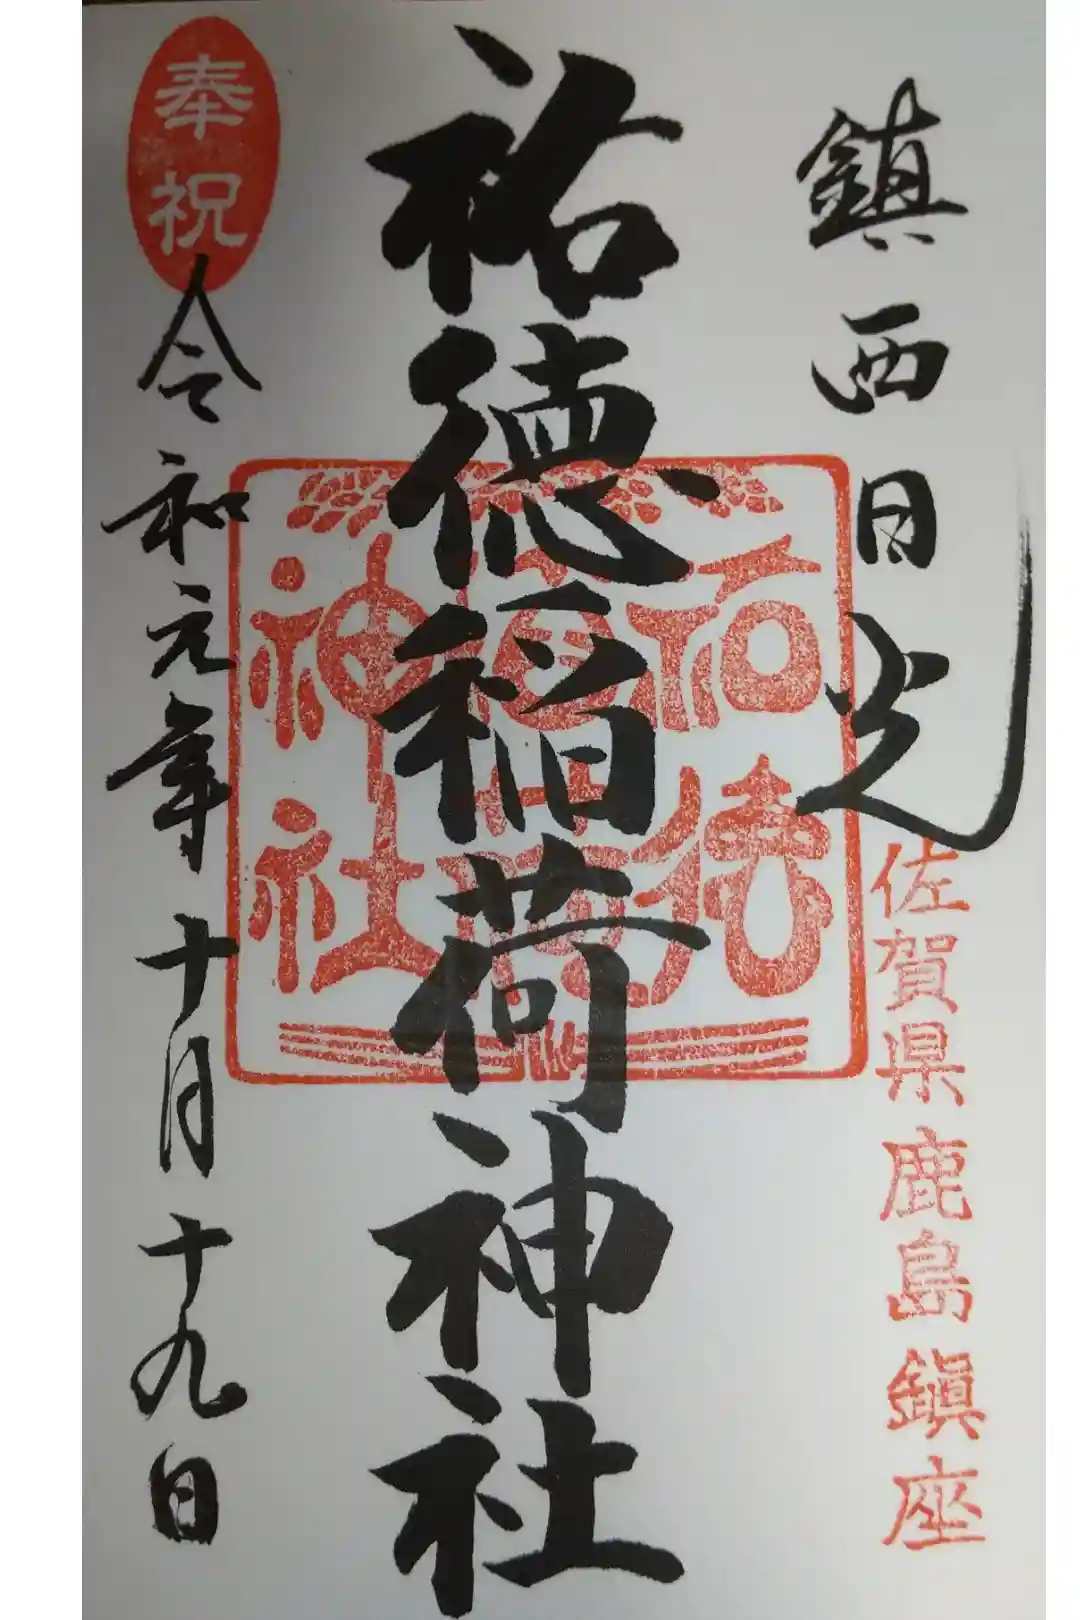 鎮西日光
佐賀県鹿島鎮座
祐徳稲荷神社
祐徳
稲荷
神社
奉祝
令和元年十月十九日